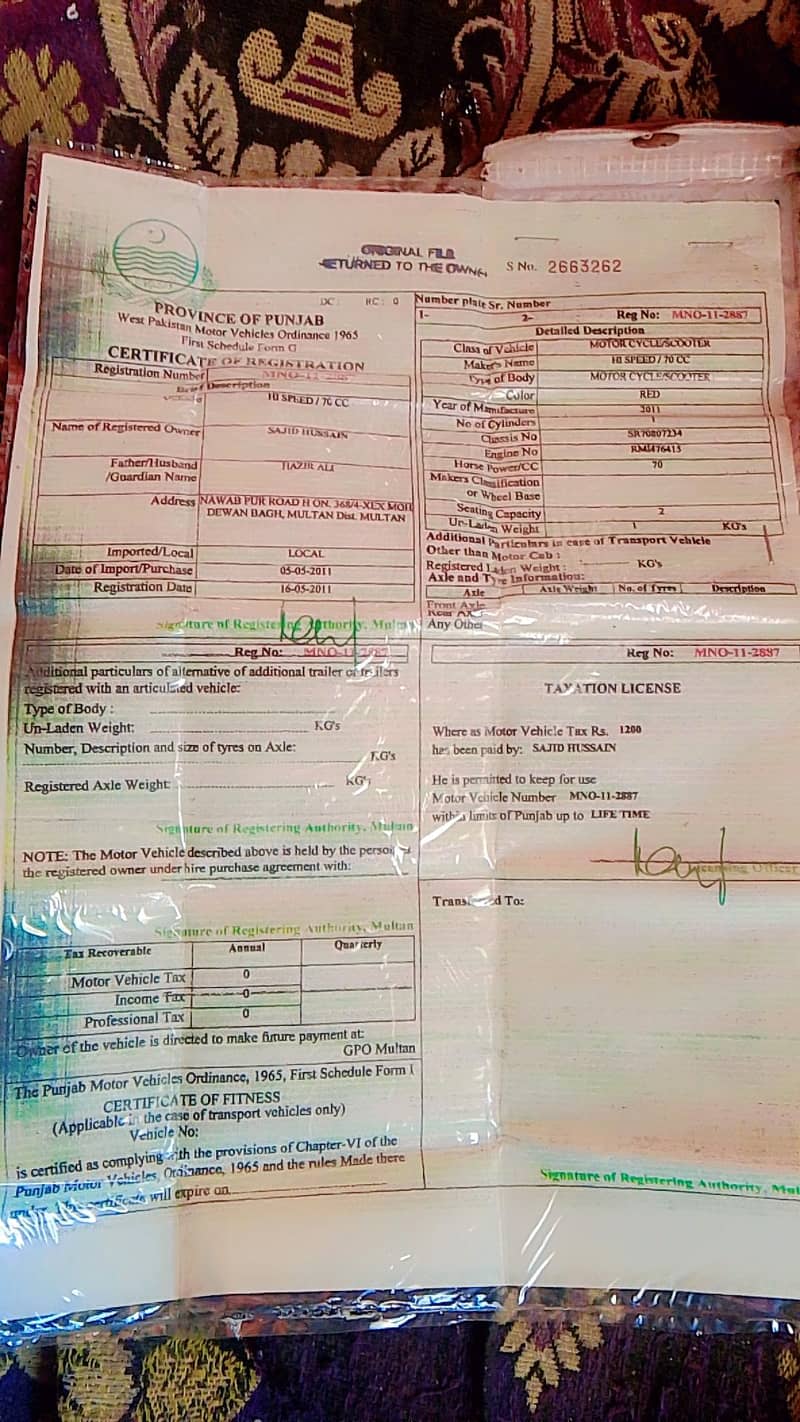 ORIGINAL FILE
RETURNED TO THE OWNER
S No. 2663262
DC: RC: 0
PROVINCE OF PUNJAB
West Pakistan Motor Vehicles Ordinance 1965
First Schedule Form G
CERTIFICATE OF REGISTRATION
Registration Number
Brief Description
HI SPEED / 70 CC
Name of Registered Owner SAJID HUSSAIN
Father/Husband
/Guardian Name
ALI
Address NAWAB PUR ROAD H ON. 368/4-XLX
DEWAN BAGH, MULTAN Dist. MULTAN
Imported/Local LOCAL
Date of Import/Purchase 05-05-2011
Registration Date 16-05-2011
Signature of Registering Authority, Multan
Number plate Sr. Number
1- 2- Reg No: MNO-11-2887
Detailed Description
Class of Vehicle MOTOR CYCLE/SCOOTER
Maker's Name HI SPEED / 70 CC
Type of Body MOTOR CYCLE/SCOOTER
Color RED
Year of Manufacture 2011
No of Cylinders 1
Chassis No SR70807234
Engine No RMI476413
Horse Power/CC 70
Makers Classification
or Wheel Base
Seating Capacity 2
Un-Laden Weight 1 KG's
Additional Particulars in case of Transport Vehicle
Other than Motor Cab :
Registered Laden Weight : KG's
Axle and Tyre Information:
Axle Axle Weight No. of Tyres Description
Front Axle
Rear Axle
Any Other
Reg No: MNO-11-2887
Additional particulars of alternative of additional trailer or trailers
registered with an articulated vehicle:
Type of Body :
Un-Laden Weight: KG's
Number, Description and size of tyres on Axle:
KG's
Registered Axle Weight: KG's
Signature of Registering Authority, Multan
NOTE: The Motor Vehicle described above is held by the person as
the registered owner under hire purchase agreement with:
Signature of Registering Authority, Multan
Tax Recoverable Annual Quarterly
Motor Vehicle Tax 0
Income Tax 0
Professional Tax 0
Owner of the vehicle is directed to make future payment at:
GPO Multan
The Punjab Motor Vehicles Ordinance, 1965, First Schedule Form I
CERTIFICATE OF FITNESS
(Applicable in the case of transport vehicles only)
Vehicle No:
is certified as complying with the provisions of Chapter-VI of the
Punjab Motor Vehicles, Ordinance, 1965 and the rules Made there
under. The certificate will expire on
Reg No: MNO-11-2887
TAXATION LICENSE
Where as Motor Vehicle Tax Rs. 1200
has been paid by: SAJID HUSSAIN
He is permitted to keep for use
Motor Vehicle Number MNO-11-2887
within limits of Punjab up to LIFE TIME
Licensing Officer
Transferred To:
Signature of Registering Authority, Mul